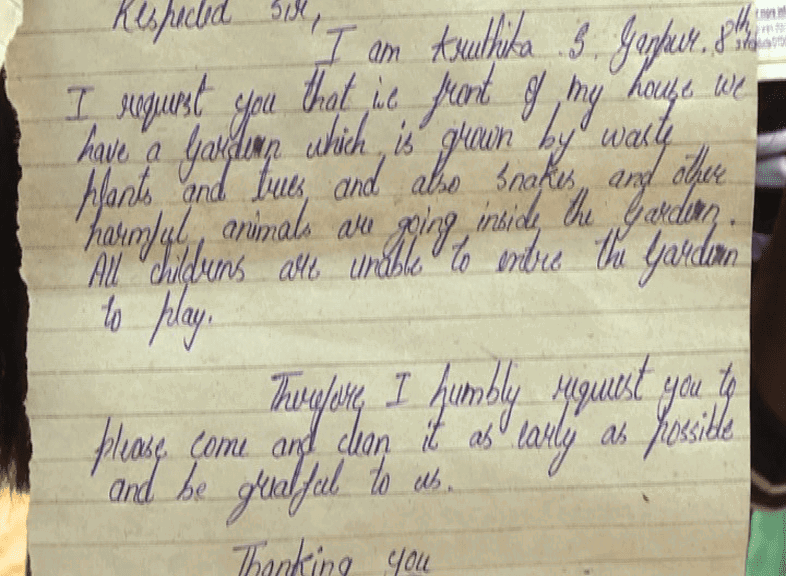 Respected Sir,
I am Kruthika .S. Ganpur. 8th
I request you that i.e front of my house we
have a Gardern which is grown by waste
plants and trees and also snakes and other
harmful animals are going inside the Gardern.
All childrens are unable to entre the Gardern
to play.
Therefore I humbly request you to
please come and clean it as early as possible
and be greatful to us.
Thanking you